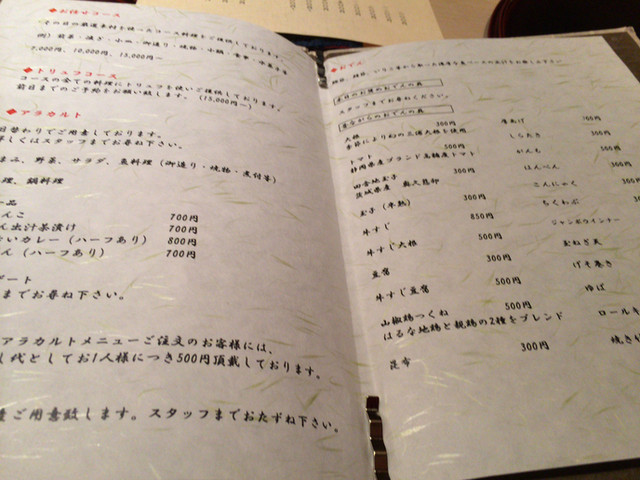 ◆お任せコース
その日の厳選素材を使ったコース料理をご提供しております。
例）前菜・凌ぎ・小皿・御造り・焼物・小鍋・食事・水菓子等
7,000円、10,000円、15,000円〜
◆トリュフコース
コースの全ての料理にトリュフを使いご提供しております。
前日までのご予約をお願い致します。（15,000円〜）
◆アラカルト
日替わりでご用意しております。
詳しくはスタッフまでお尋ね下さい。
まみ、野菜、サラダ、魚料理（御造り・焼物・煮付等）
理、鍋料理
品
んこ 700円
ん出汁茶漬け 700円
いカレー（ハーフあり） 800円
ん（ハーフあり） 700円
ート
までお尋ね下さい。
アラカルトメニューご注文のお客様には、
し代としてお1人様につき500円頂戴しております。
ご用意致します。スタッフまでおたずね下さい。
◆おでん
スタッフまでお尋ねください。
昔ながらのおでんの具
大根 300円
季節により幻の三浦大根を使用
トマト 500円
静岡県産ブランド高糖度トマト
田舎地玉子 300円
茨城県産 奥久慈卵
玉子（半熟） 300円
牛すじ 850円
牛すじ大根 500円
豆腐 300円
牛すじ豆腐 500円
山椒鶏つくね 500円
はるな地鶏と親鶏の2種をブレンド
昆布 300円
厚あげ 300円
しらたき
がんも
はんぺん
こんにゃく
ちくわぶ
ジャンボウインナー
玉ねぎ天
げそ巻き
ゆば
ロールキ
焼き